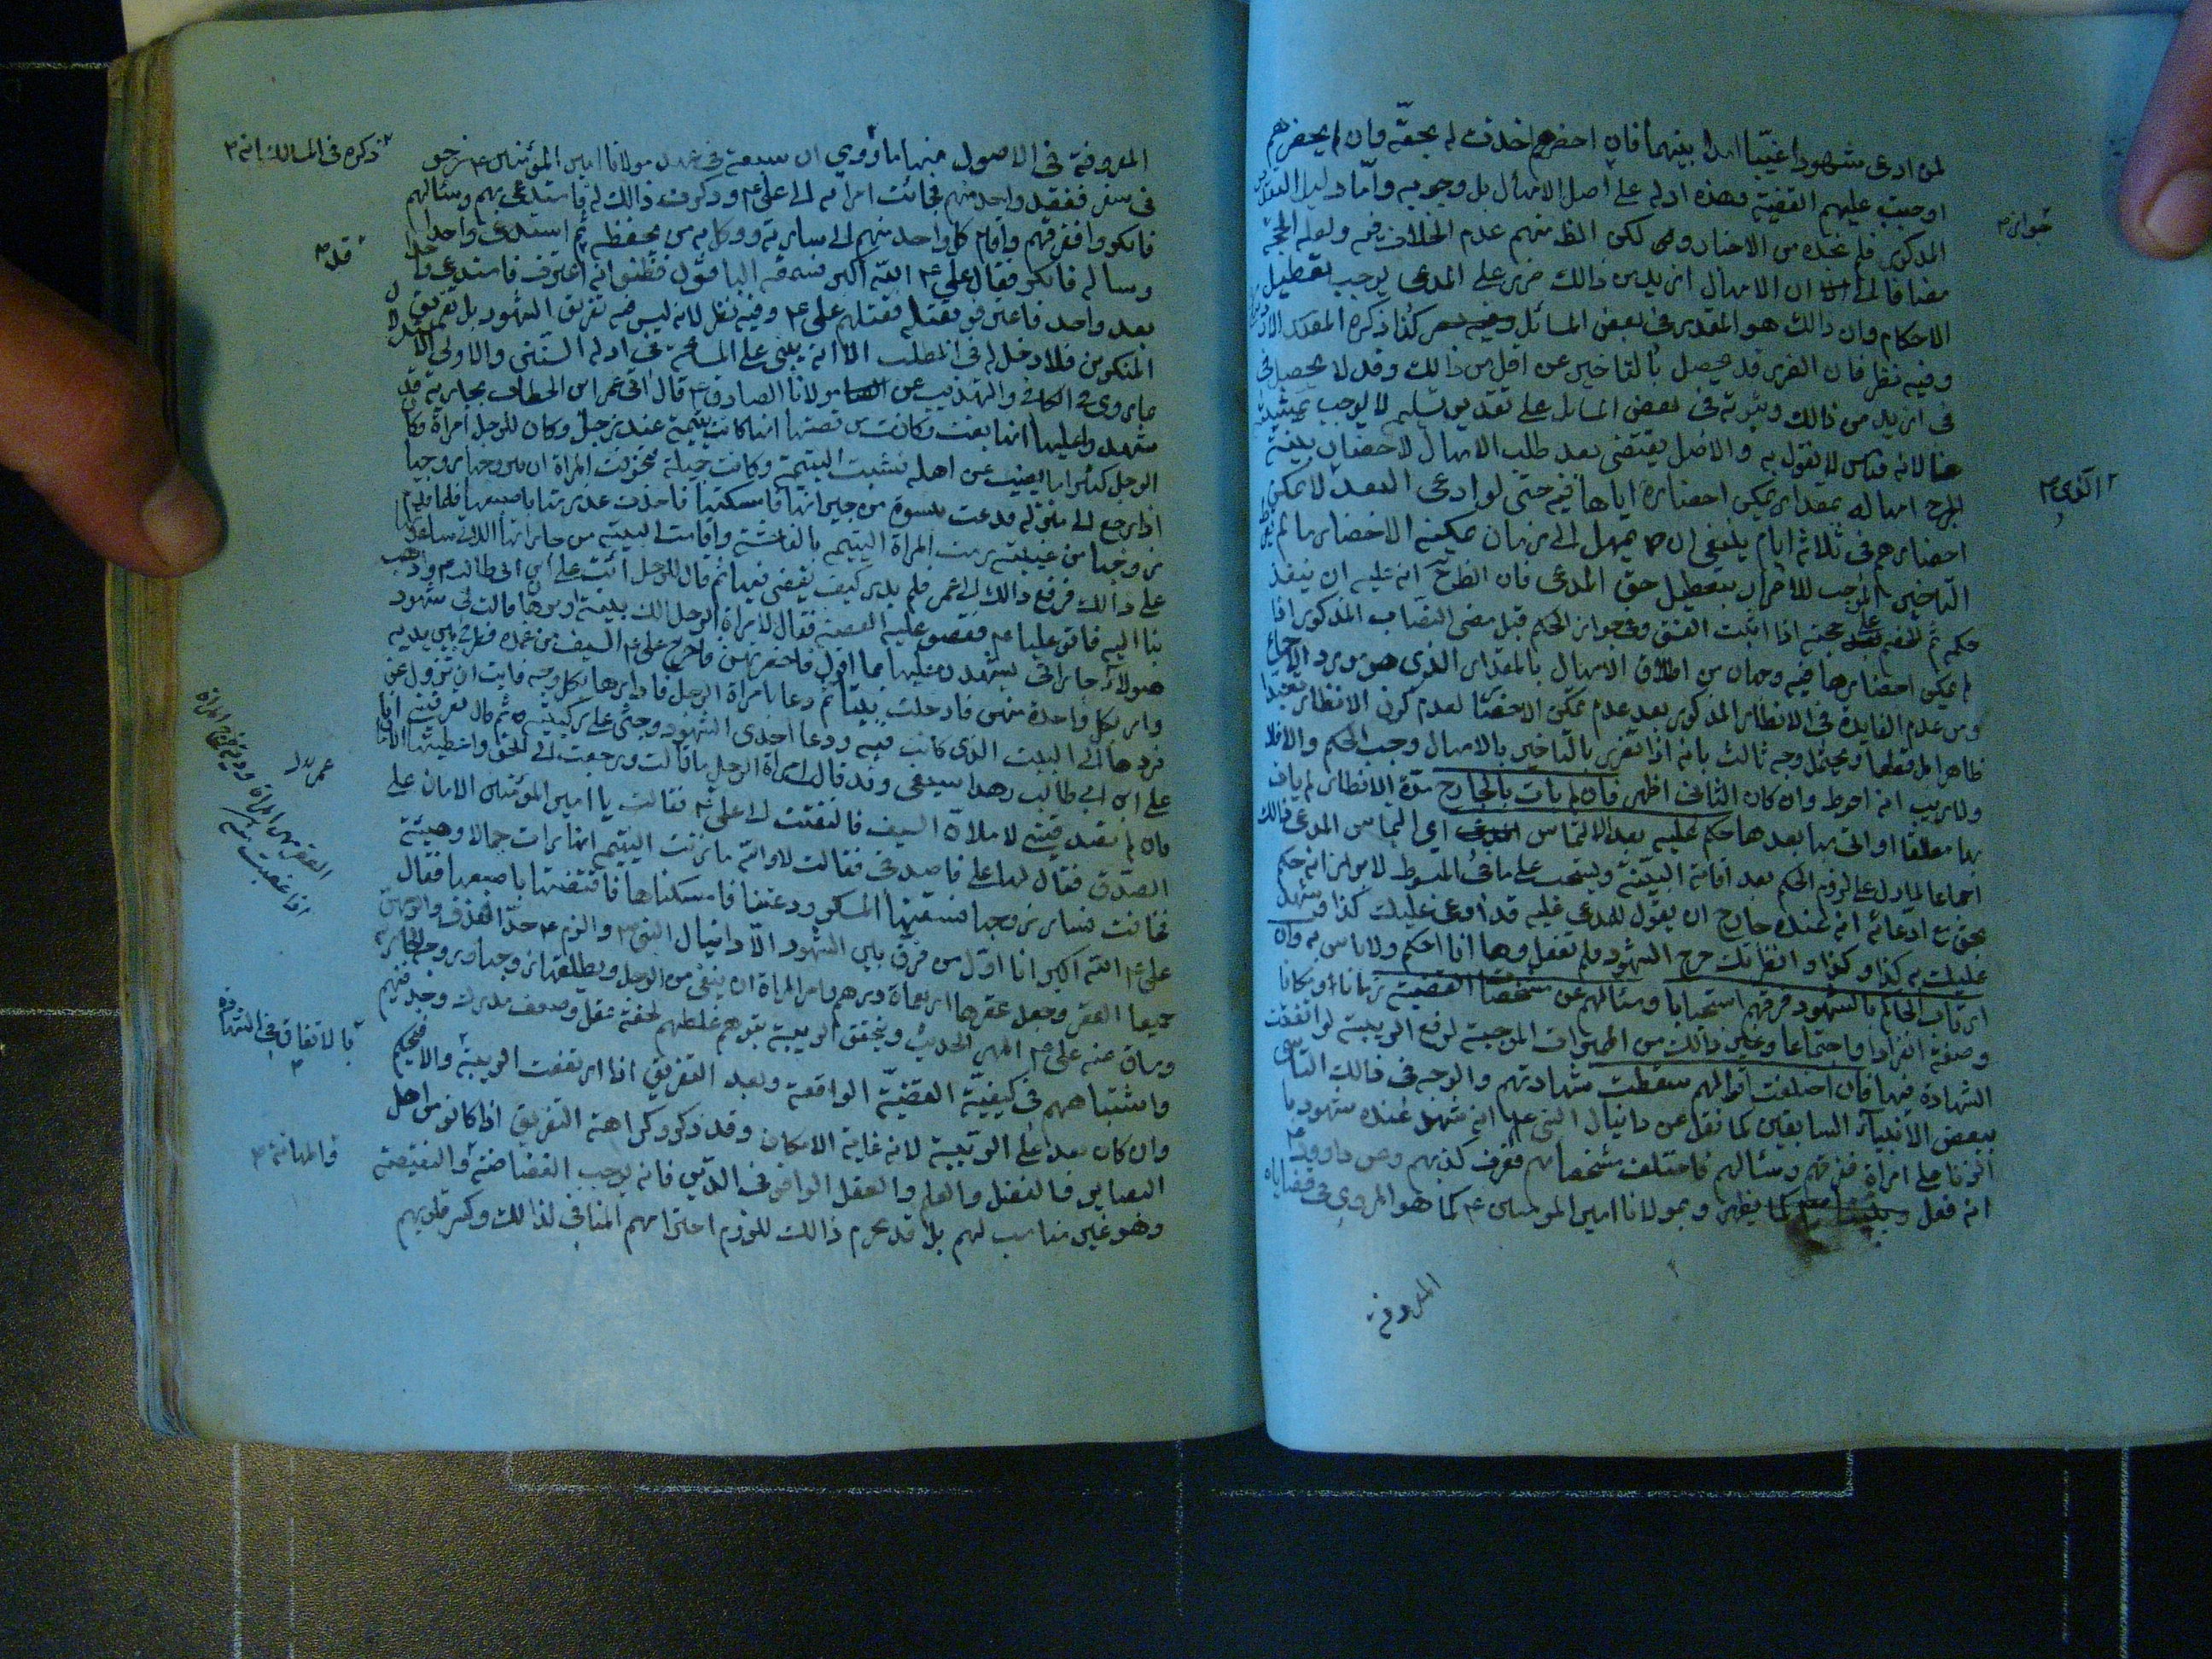 لمن ادعى شهودا غيّبا امدا بينهما فان احضرهم اخذت له بحقه وان لم يحضرهم
اوجبت عليهم القضية وهذه ادلة على اصل الامهال بل وجوبه واما دليل التقدير
المذكور فلم نجده من الاخبار ولكن الظ منهم عدم الخلاف فيه ولعله الحجة
مضافا الى ان الامهال ازيد من ذالك ضرر على المدعى يوجب تعطيل
الاحكام وان ذالك هو المقدر فى بعض المسائل كذا ذكره المقدس
وفيه نظر فان الضرر قد يحصل بالتاخير عن اقل من ذالك وقد لا يحصل فى
فى ازيد من ذالك وثبوته فى بعض المسائل على تقدير تسليم لا يوجب تمشيته
هنا لانه قياس لا نقول به والاصل يقتضى بعد طلب الامهال لاحضار بينة
الجرح امهاله بمقدار يمكن احضاره اياها فيه حتى لو ادعى البعد لا يمكن
احضارهم فى ثلاثة ايام ينبغى ان يمهل الى زمان يمكنه الاحضار ما لم
التاخير الموجب للاضرار بتعطيل حق المدعى فان الظ ح انه عليه ان ينفذ
حكمه ثم حجته اذا اثبت الفسق وفى جواز الحكم قبل مضى النصاب المذكور اذا
لم يمكن احضارها فيه وجهان من اطلاق الامهال بالمقدار الذى هو مورد الاجماع
ومن عدم الفايدة فى الانظار المذكور بعد عدم تمكن الاحضار لعدم كون الانظار تعبدا
ظاهرا بل قطعا ويحتمل وجه ثالث بانه اذا تضرر بالتاخير بالامهال وجب الحكم والا فلا
ولا ريب انه احوط وان كان الثانى اظهر فان لم يات بالجارح مدة الانظار لم يات
بها مطلقا او اتى بها بعدها حكم عليه بعد الالتماس اى التماس المدعى ذالك
اجماعا لما دل على لزوم الحكم بعد اقامة البينة ويستحب على ما فى المبسوط
بحق مع ادعائه انه عنده جارح ان يقول للمدعى عليه قد ادعى عليك كذا وشهد
عليك به كذا وكذا وانظرتك جرح الشهود فلم تفعل وها انا احكم ولا باس به وان
ارتاب الحاكم بالشهود فرقهم استحبابا وسئالهم عن مشخصات القضية زمانا ومكانا
وصفة انفرادا واجتماعا وغير ذالك من المميزات الموجبة لرفع الريبة لو اتفقت
الشهادة فيها فان اختلفت اقوالهم سقطت شهادتهم والوجه فى ذالك التاسى
ببعض الانبياء السابقين كما نقل عن دانيال النبى ع انه شهد عنده شهود
الزنا على امراة ففرقهم وسئالهم فاختلف مشخصاتهم فعرف كذبهم وعن داود ع
انه فعل كما يظهر وبمولانا امير المومنين ع كما هو المروى فى قضاياه
المعروفة
جواز م
المعروفة فى الاصول منها ما روي ان سبعة فى عهد مولانا امير المؤمنين ع خرجوا
فى سفر ففقد واحد منهم فجائت امراته الى على ع وذكرت ذالك له فاستدعى بهم وسئالهم
فانكروا ففرقهم واقام كل واحد منهم الى سارية ووكل به من يحفظه ثم استدعى واحدا
وساله فانكر فقال على ع الله اكبر فسمعه الباقون فظنوا انه اعترف فاستدعى
بعد واحد فاعترفوا بقتله فقتلهم على ع وفيه نظر لانه ليس فيه تفريق الشهود بل تفريق
المنكرين فلا دخل له فى المطلب الا انه يبنى على المسامحة فى ادلة السنن والاولى الاستدلال
بما روى فى الكافى والتهذيب عن مولانا الصادق ع قال اتى عمر ابن الخطاب بجارية قد
شهدوا عليها انها بغت وكانت من قصتها انها كانت يتيمة عند رجل وكان للرجل امراة وكان
الرجل كثيرا ما يغيب عن اهله فشبت اليتيمة وكانت جميلة فتخوفت المراة ان يتزوجها زوجها
اذا رجع الى منزله فدعت نسوة من جيرانها فامسكنها فاخذت عذرتها باصبعها فلما قدم
زوجها من غيبته رمت المراة اليتيمة بالفاحشة واقامت البينة من جاراتها اللاتى ساعدتها
على ذالك فرفع ذالك الى عمر فلم يدر كيف يقضى فيها ثم قال للرجل ائت على ابن ابى طالب ع واذهب
بنا اليه فاتوا عليا ع فقصوا عليه القصة فقال لامراة الرجل الك بينة او برهان قالت لى شهود
هولاء جاراتى يشهدن عليها بما اقول فاحضرتهن فاخرج على ع السيف من غمده فطرح بين يديه
وامر بكل واحدة منهن فادخلت بيتا ثم دعا بامراة الرجل فادارها بكل وجه فابت ان تزول عن
فردها الى البيت الذى كانت فيه ودعا احدى الشهود وجثى على ركبتيه ثم قال تعرفينى انا
على ابن ابى طالب وهذا سيفى وقد قالت امراة الرجل ما قالت ورجعت الى الحق واعطيتها الامان
وان لم تصدقينى لاملان السيف فالتفتت الى على ع فقالت يا امير المؤمنين الامان على
الصدق فقال لها على فاصدقى فقالت لا والله ما زنت اليتيمة انها رات جمالا وهيئة
فخافت فساد زوجها فسقتها المسكر ودعتنا فامسكناها فافتضتها باصبعها فقال
على ع الله اكبر انا اول من فرق بين الشهود الا دانيال النبى ع والزم ع حد القذف والزمهن
جميعا العقر وجعل عقرها اربعماة درهم وامر المراة ان ينفى من الرجل ويطلقها زوجها وزوجه الجارية
وساق عنه على ع المهر الحديث ويتحقق الريبة بتوهم غلطهم لخفة عقل وضعف مدرك وجد فيهم
واشتباههم فى كيفية القضية الواقعة وبعد التفريق اذا ارتفعت الريبة والا فيحكم
وان كان بعد على الريبة لانه غاية الامكان وقد ذكروا كراهة التفريق اذا كانوا من اهل
البصاير والفضل والعلم والعقل الوافر فى الدين فانه يوجب الغضاضة والنقيصة
وهو غير مناسب لهم بل قد يحرم ذالك للزوم احترامهم المنافى لذالك وكسر قلوبهم
ذكره فى المسالك انه م
قد م
بالاتفاق فى الشهادة
والمهانة م